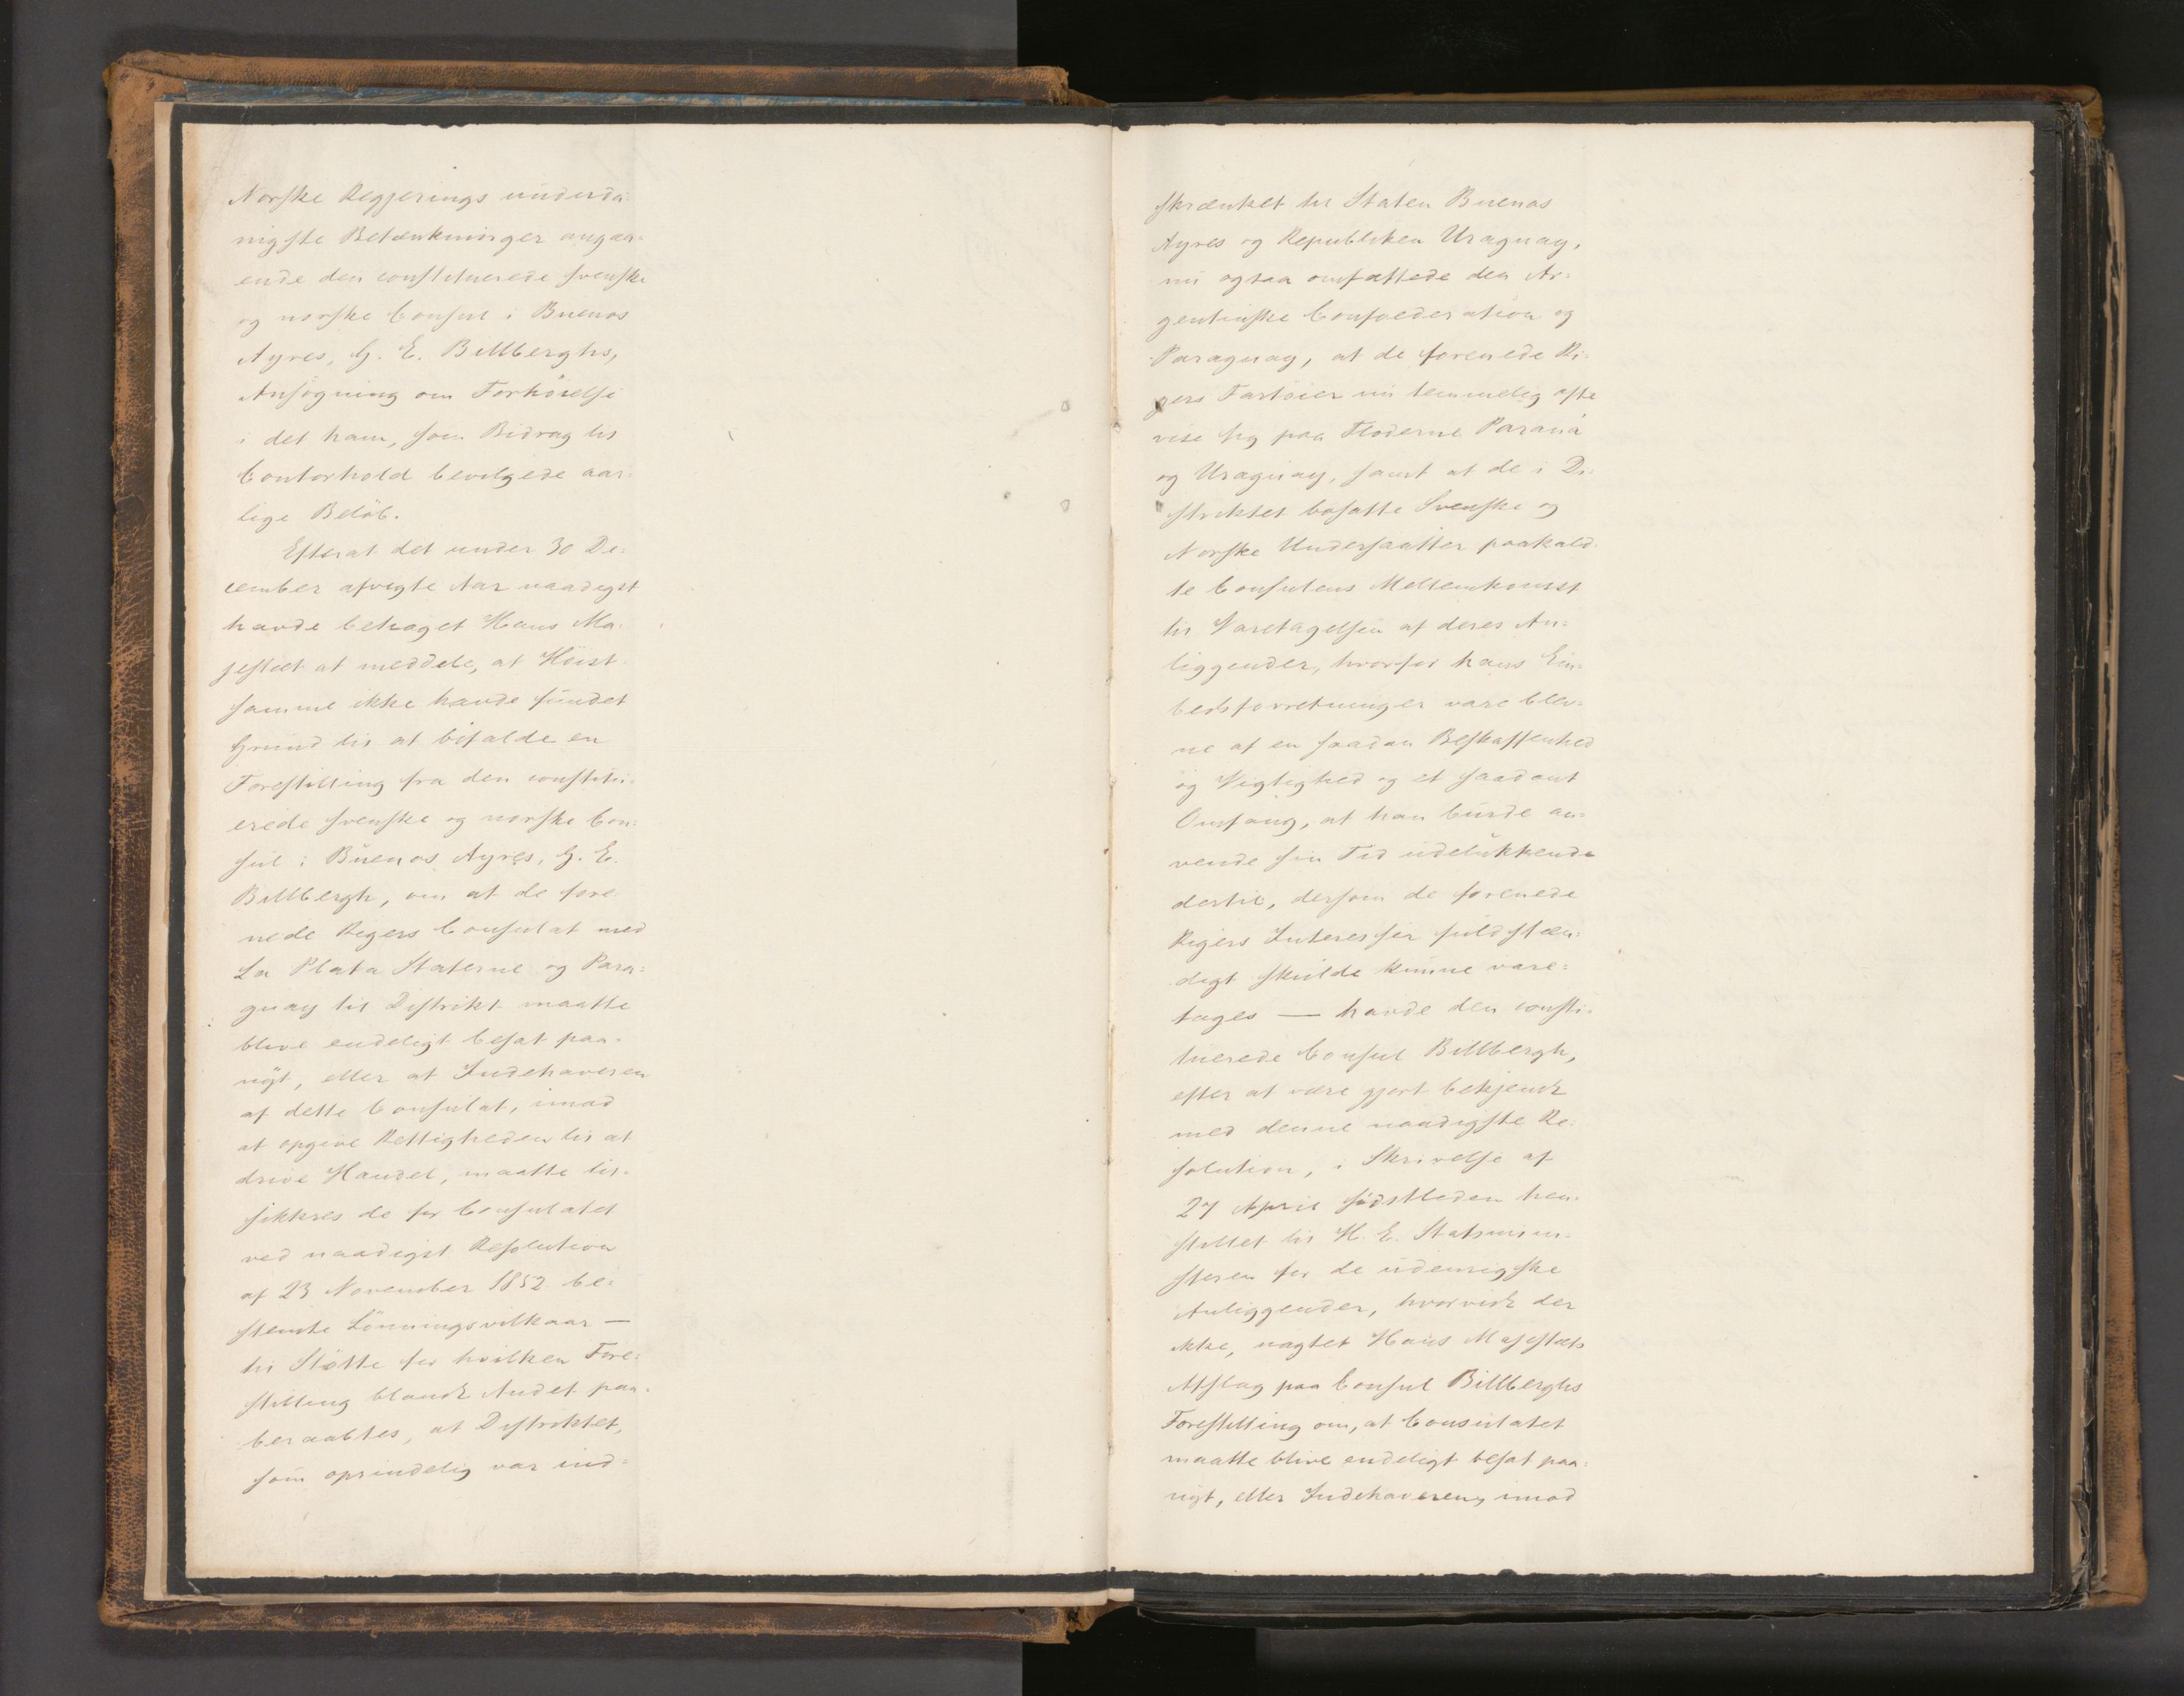 Norske Regjerings underda-
nigste Betænkninger angaa-
ende den constituerede svenske
og norske Consul i Buenos
Ayres, G. E. Billberghs,
Ansögning om Forhöielse
i det ham, som Bidrag til
Contorhold bevilgede aar-
lige Belöb.
Efterat det under 30 De-
cember afvigte Aar naadigst
havde behaget Hans Ma-
jestæt at meddele, at Höist-
samme ikke havde fundet
Grund til at bifalde en
Forestilling fra den constitu-
erede svenske og norske Con-
sul i Buenos Ayres, G. E.
Billbergh, om at de fore-
nede Rigers Consulat med
La Plata Staterne og Para-
guay til Distrikt maatte
blive endeligt besat paa-
nyt, eller at Indehaveren
af dette Consulat, imod
at opgive Rettigheden til at
drive Handel, maatte til-
sikkres de for Consulatet
ved naadigst Resolution
af 23 November 1852 be-
stemte Lönningsvilkaar —
til Stötte for hvilken Fore-
stilling blandt Andet paa-
beraabtes, at Distriktet,
som oprindelig var ind-
skrænket til Staten Buenos
Ayres og Republiken Uraguay,
nu ogsaa omfattede den Ar-
gentinske Confoederation og
Paraguay, at de forenede Ri-
gers Fartöier nu temmelig ofte
vise sig paa Floderne Paraná
og Uraguay, samt at de i Di-
striktet bosatte Svenske og
Norske Undersaatter paakald-
te Consulens Mellemkomst
til Varetagelsen af deres An-
liggender, hvorfor hans Em-
bedsforretninger vare blev-
ne af en saadan Beskaffenhed
og Vigtighed og et saadant
Omfang, at han burde an-
vende sin Tid udelukkende
dertil, dersom de forenede
Rigers Interesser fuldstæn-
digt skulde kunne vare-
tages — havde den consti-
tuerede Consul Billbergh,
efter at være gjort bekjendt
med denne naadigste Re-
solution, i Skrivelse af
27 April sidstleden hen-
stillet til H. E. Statsmini-
steren for de udenrigske
Anliggender, hvorvidt der
ikke, uagtet Hans Majestæts
Afslag paa Consul Billberghs
Forestilling om, at Consulatet
maatte blive endeligt besat paa-
nyt, eller Indehaveren, imod